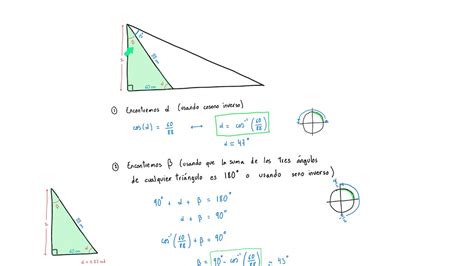 β
88 cm
60 cm
α
① Encontremos α (usando coseno inverso)
cos(α) = 60/88 ⟷ α = cos⁻¹(60/88)
α ≈ 47°
② Encontremos β (usando que la suma de los tres ángulos
de cualquier triángulo es 180° o usando seno inverso)
90° + α + β = 180°
α + β = 90°
cos⁻¹(60/88) + β = 90°
β = 90° - cos⁻¹(60/88) ≈ 43°
88 cm
60 cm